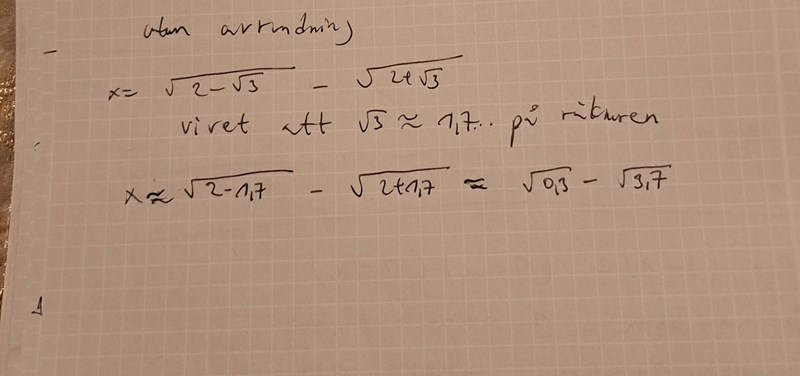 utan avrundning
x= √2-√3 - √2+√3
vi vet att √3 ≈ 1,7... på räknaren
x ≈ √2-1,7 - √2+1,7 ≈ √0,3 - √3,7